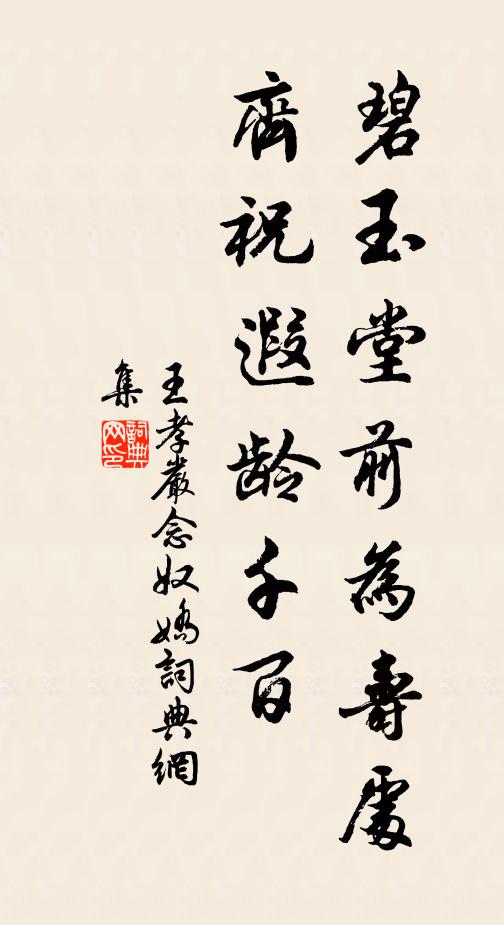 碧玉堂前為壽處
齊祝遐齡千百
王孝嚴念奴嬌詞典網
集
詞典
网印